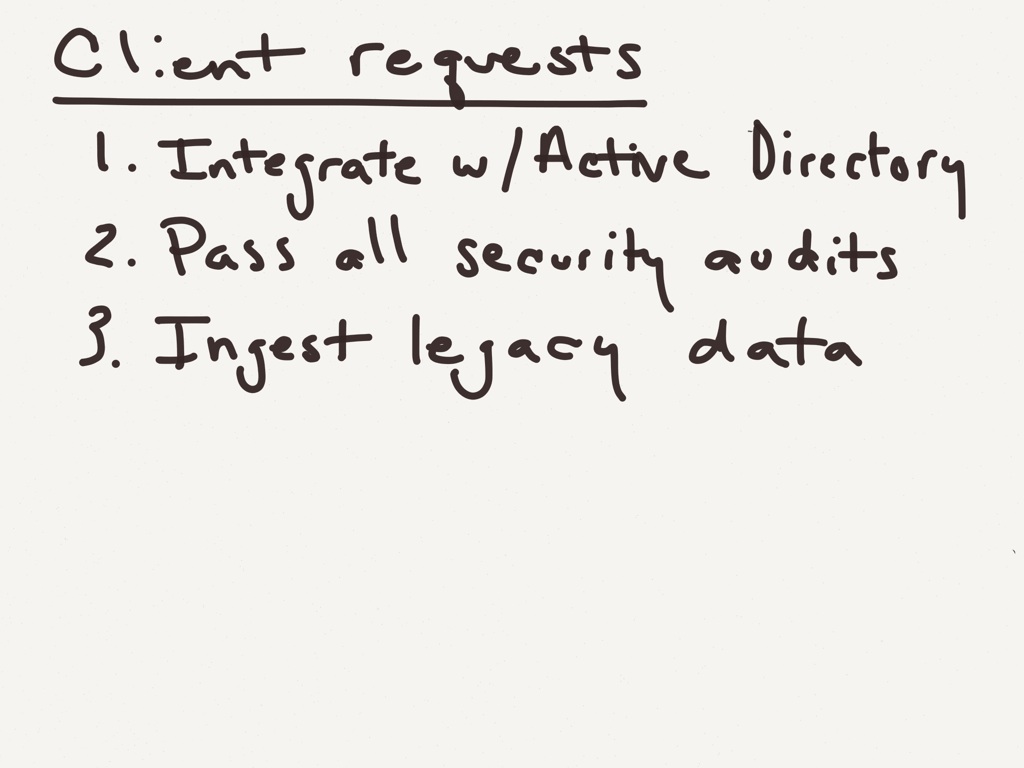 Client requests
1. Integrate w/Active Directory
2. Pass all security audits
3. Ingest legacy data